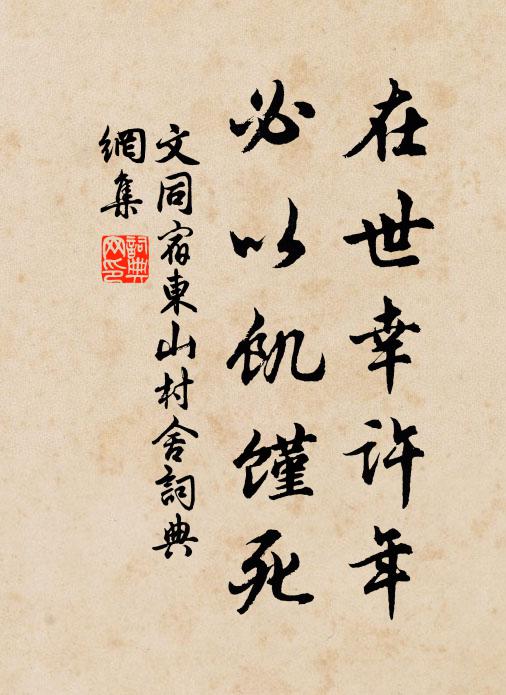 在世幸許年
必以飢饉死
文同宿東山村舍詞典
網集
詞典
网印